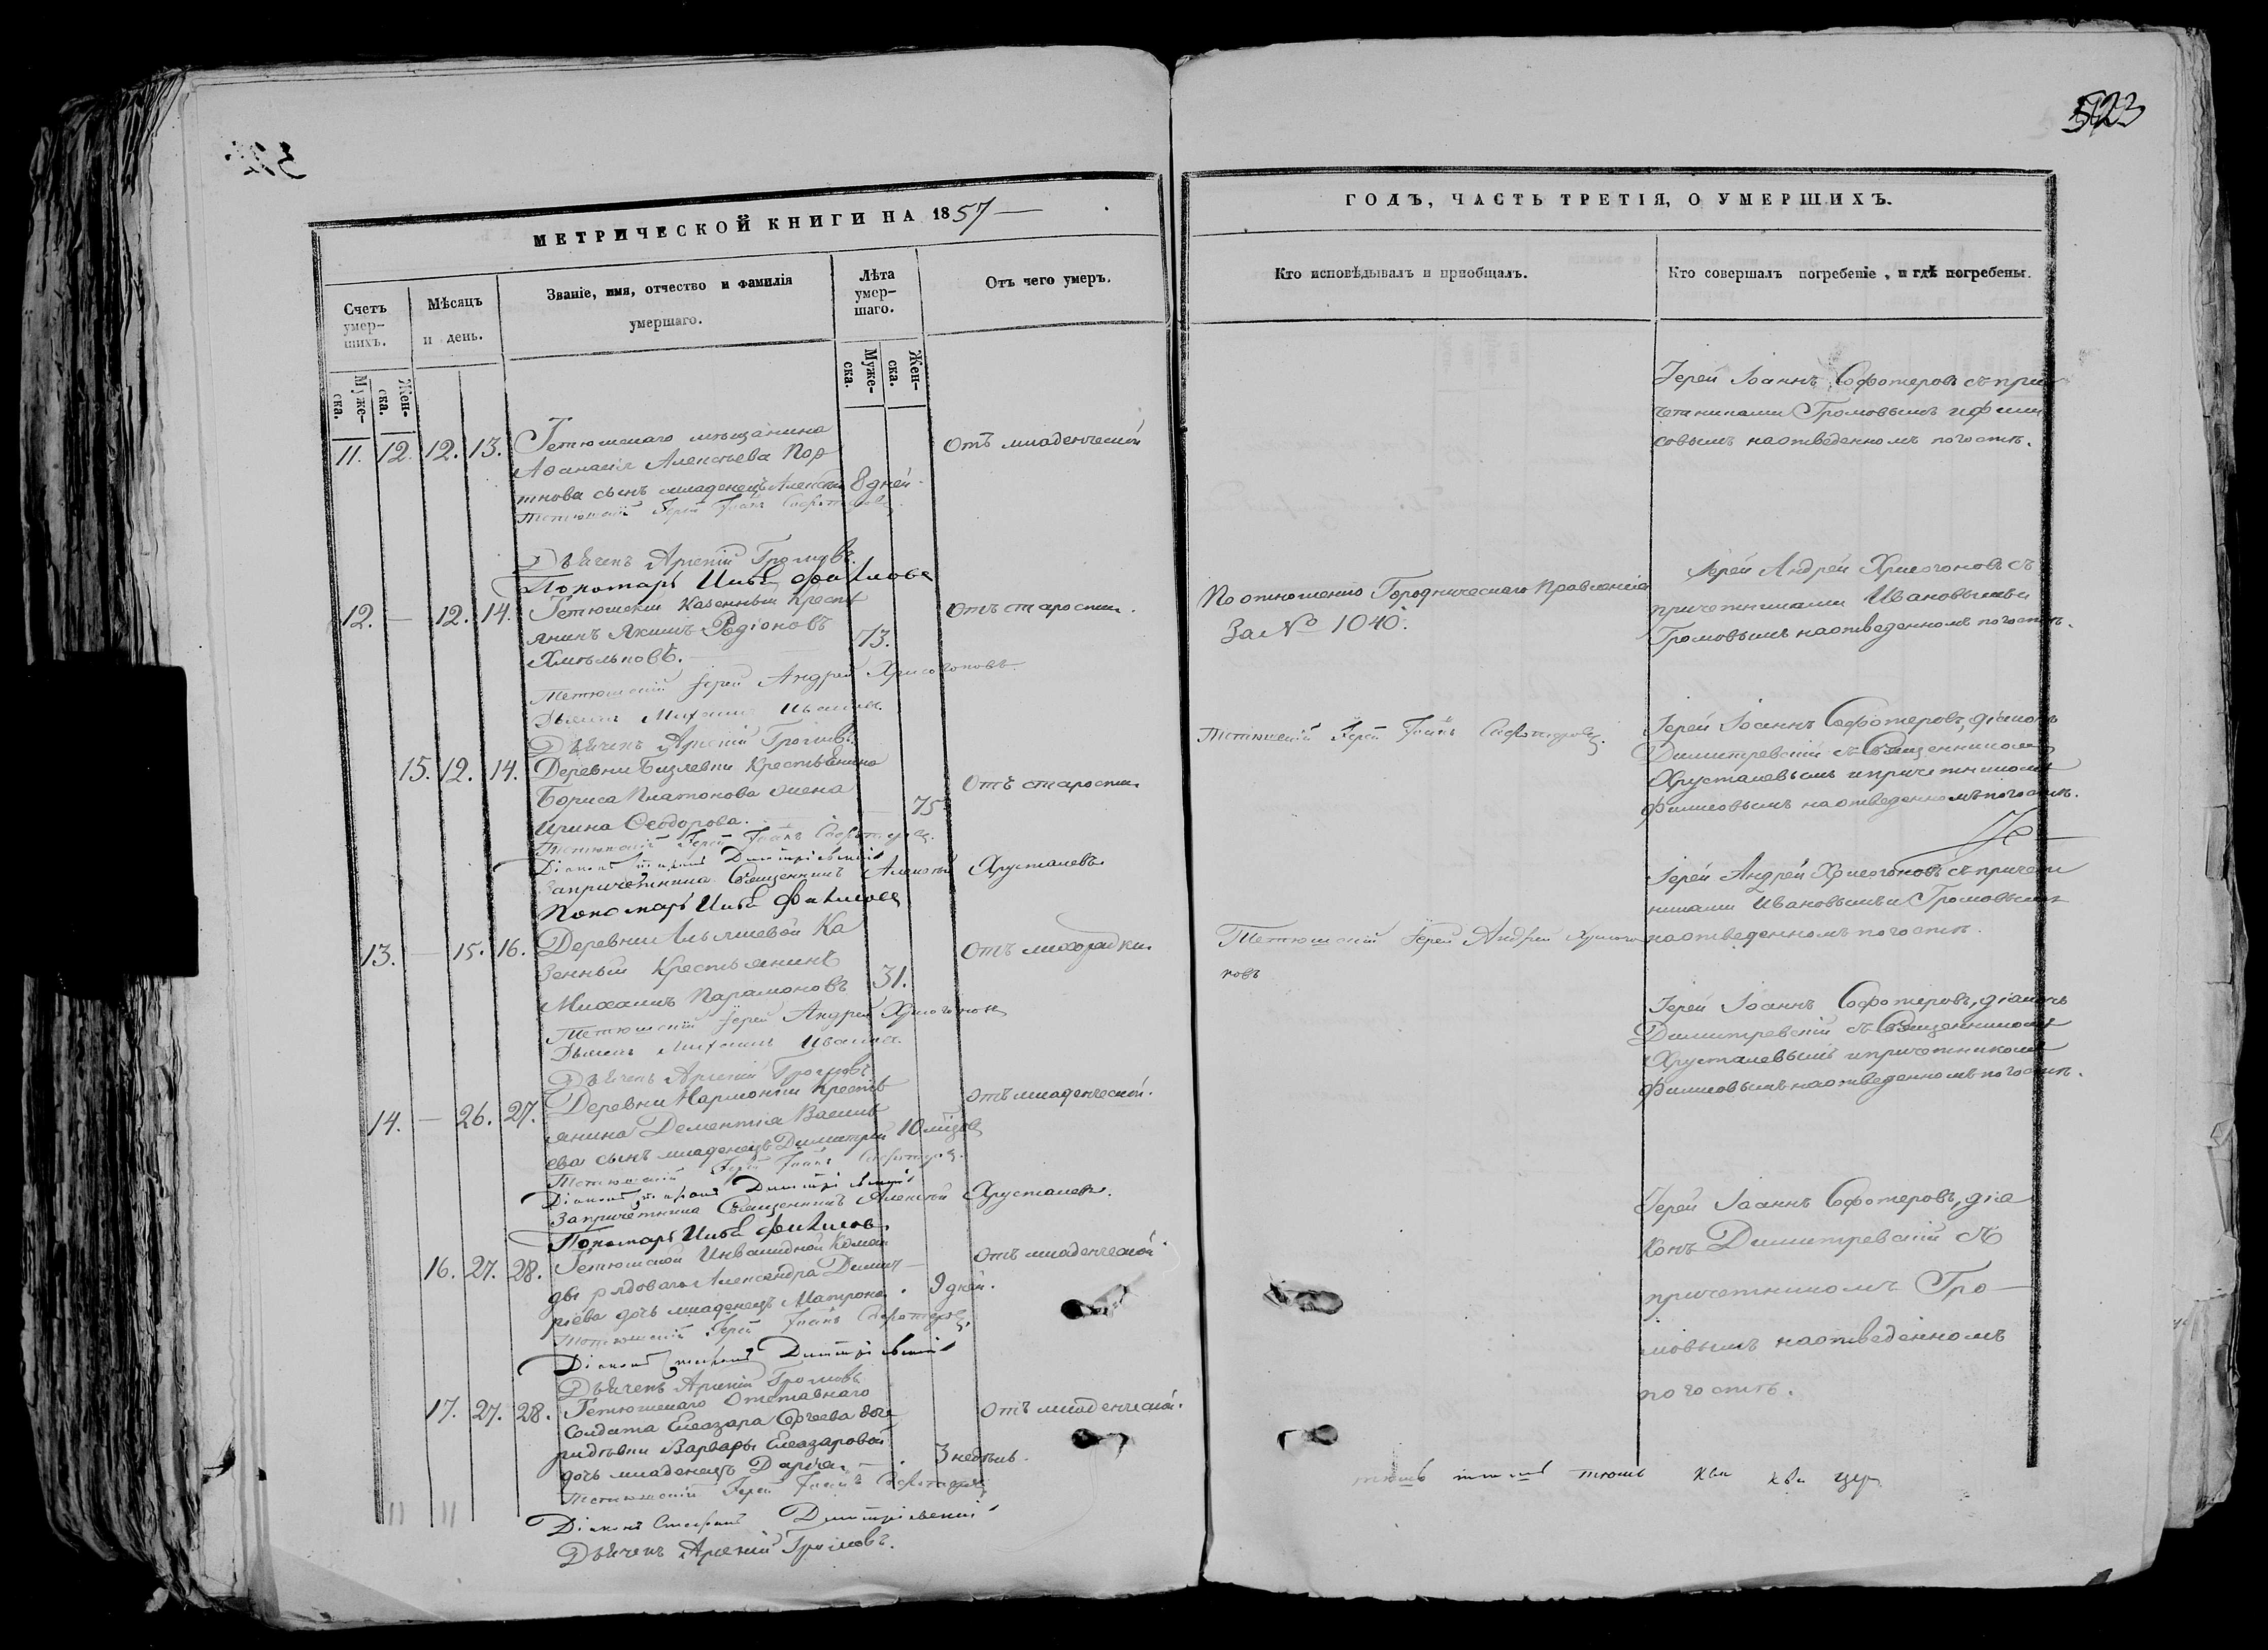 523
МЕТРИЧЕСКОЙ КНИГИ НА 1857
ГОДЪ, ЧАСТЬ ТРЕТІЯ, О УМЕРШИХЪ.
Счетъ умер-шихъ.
Муже-ска.
Жен-ска.
Мѣсяцъ и день.
Званіе, имя, отчество и фамилія умершаго.
Лѣта умер-шаго.
Муже-ска.
Жен-ска.
Отъ чего умеръ.
Кто исповѣдывалъ и пріобщалъ.
Кто совершалъ погребеніе, и гдѣ погребены.
11. 12. 12. 13. Тетюшскаго мѣщанина
Аѳанасія Алексѣева Пор
тнова сынъ младенецъ Алексѣй 8 дней
Отъ младенческой
Тетюшскій Іерей Іоаннъ Софотеровъ.
Дьячекъ Арсеній Громовъ.
Пономарь
Іерей Іоаннъ Софотеровъ съ при
четниками Громовымъ и Филли
совымъ на отведенномъ погостѣ.
12. — 12. 14. Тетюшскій казенный кресть
янинъ Якимъ Родіоновъ
Хмѣльновъ.
73.
Отъ старости.
Тетюшскій Іерей Андрей Хрисогоновъ.
Дьячекъ Михаилъ Ивановъ.
Дьячекъ Арсеній Громовъ.
По отношенію Городническаго Правленія
За № 1040.
Іерей Андрей Хрисогоновъ съ
причетниками Ивановымъ и
Громовымъ на отведенномъ погостѣ.
15. 12. 14. Деревни Бизлевки крестьянина
Бориса Платонова жена
Ирина Ѳеодорова.
75
Отъ старости
Тетюшскій Іерей Іоаннъ Софотеровъ.
Діаконъ Димитріевскій
За причетника Священникъ Алексѣй Хрусталевъ
Пономарь
Тетюшскій Іерей Іоаннъ Софотеровъ.
Іерей Іоаннъ Софотеровъ, діаконъ
Димитревскій съ Священникомъ
Хрусталевымъ и причетникомъ
на отведенномъ погостѣ.
13. — 15. 16. Деревни Ка
зенный крестьянинъ
Михаилъ Парамоновъ
31.
Отъ лихорадки
Тетюшскій Іерей Андрей Хрисогоновъ
Дьячекъ Михаилъ Ивановъ.
Дьячекъ Арсеній Громовъ
Тетюшскій Іерей Андрей Хрисого
новъ
Іерей Андрей Хрисогоновъ съ причет
никами Ивановымъ и Громовымъ
на отведенномъ погостѣ.
14. — 26. 27. Деревни кресть
янина Дементія Василь
ева сынъ младенецъ Димитрій 10 мѣсяц
отъ младенческой.
Тетюшскій Іерей Іоаннъ Софотеровъ.
Діаконъ Димитріевскій
За причетника Священникъ Алексѣй Хрусталевъ.
Пономарь
Іерей Іоаннъ Софотеровъ, діаконъ
Димитревскій съ Священникомъ
Хрусталевымъ и причетникомъ
на отведенномъ погостѣ.
16. 27. 28. Тетюшской Инвалидной Коман
ды рядоваго Александра Димит
ріева дочь младенецъ Матрона. 9 дней.
Отъ младенческой
Тетюшскій Іерей Іоаннъ Софотеровъ.
Діаконъ Стефанъ Димитріевскій
Дьячекъ Арсеній Громовъ
Іерей Іоаннъ Софотеровъ, діа
конъ Димитревскій съ
причетникомъ Гро
мовымъ на отведенномъ
погостѣ.
17. 27. 28. Тетюшскаго Отставнаго
Солдата Елеазара Сергѣева доче
ри дѣвки Варвары Елеазаровой
дочь младенецъ Дарія. 3 недѣль.
Отъ младенческой.
Тетюшскій Іерей Іоаннъ Софотеровъ
Діаконъ Стефанъ Димитріевскій
Дьячекъ Арсеній Громовъ.